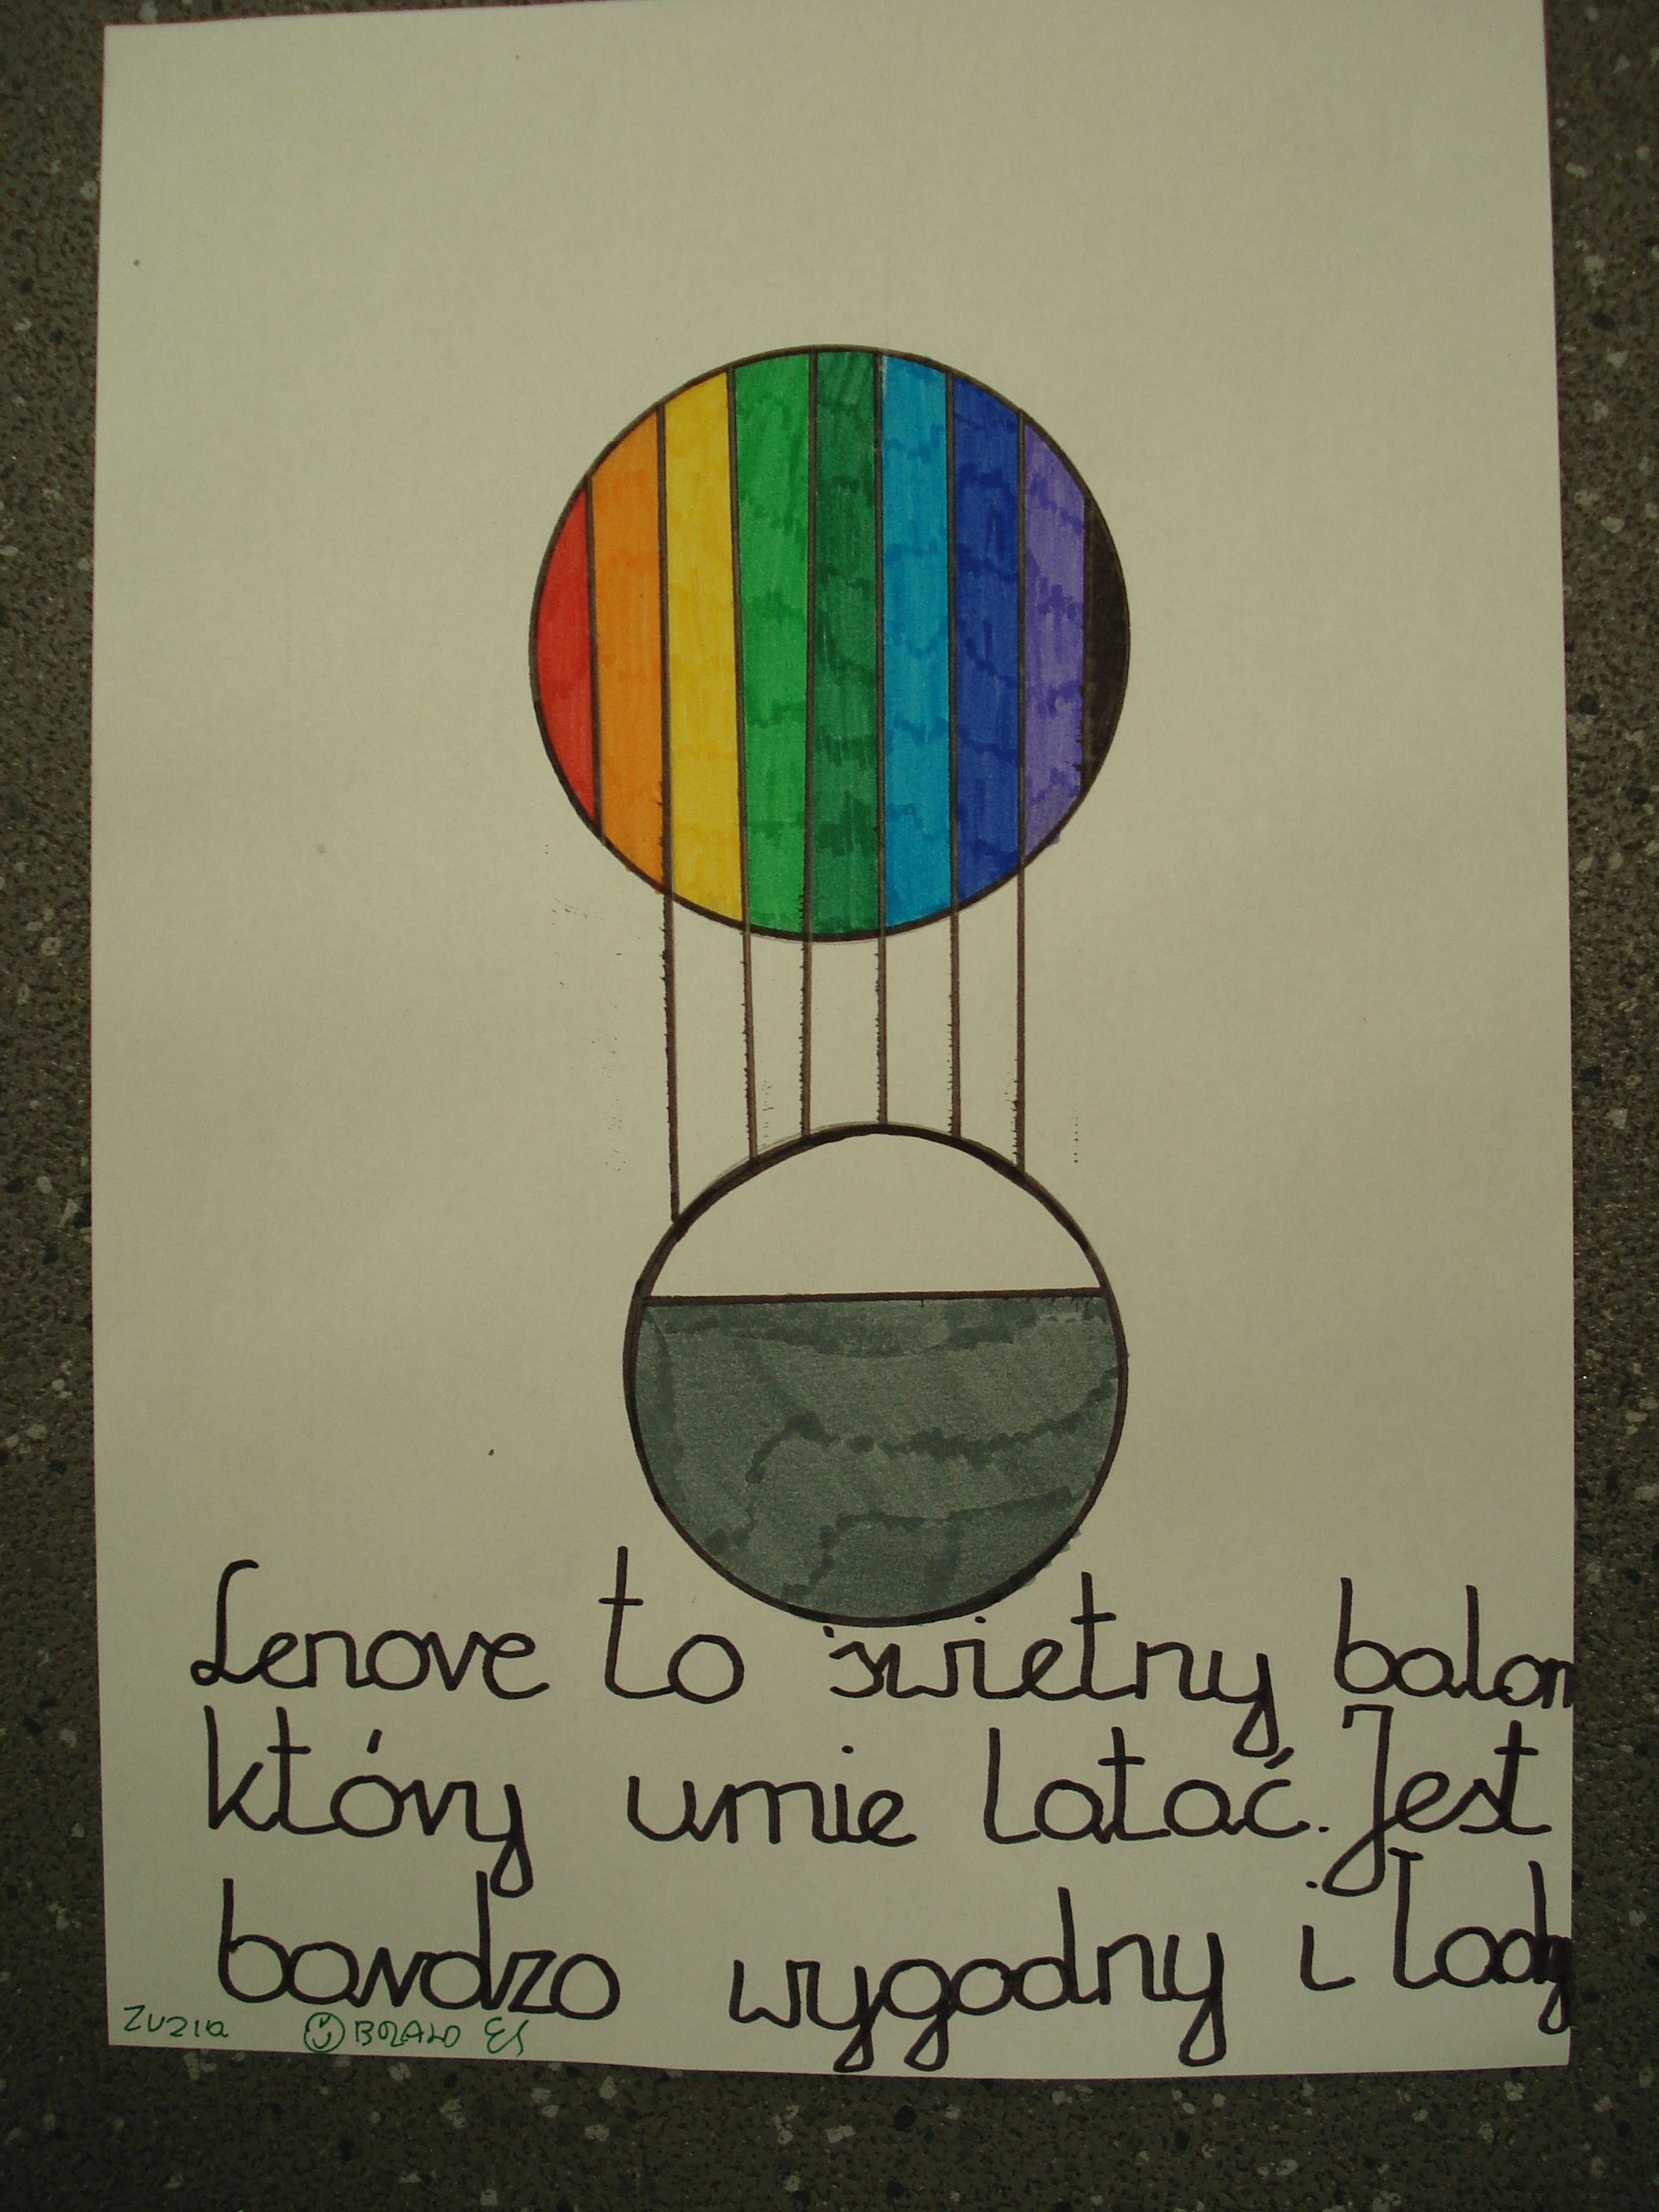 Lenove to świetny balon
który umie latać. Jest
bardzo wygodny i ładny
Zuzia